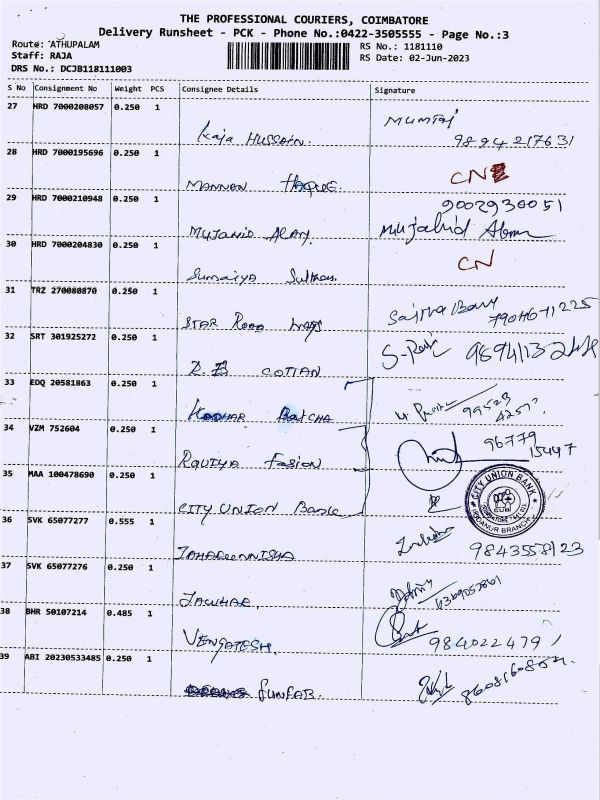 THE PROFESSIONAL COURIERS, COIMBATORE
Delivery Runsheet - PCK - Phone No.:0422-3505555 - Page No.:3
Route: ATHUPALAM
Staff: RAJA
DRS No.: DCJB118111003
RS No.: 1181110
RS Date: 02-Jun-2023
S No Consignment No Weight PCS Consignee Details Signature
27 HRD 7000208057 0.250 1
Kaja Hussain. Mumtaj
9894217631
28 HRD 7000195696 0.250 1
Mannan Haque. CNE
29 HRD 7000210948 0.250 1
9002930051
Mujahid Alam. Mujahid Alam
30 HRD 7000204830 0.250 1
Sumaiya Sulthan. CN
31 TRZ 270080870 0.250 1
STAR Road ways
32 SRT 301925272 0.250 1
R.B COTTAN
33 EDQ 20581863 0.250 1
Batcha
34 VZM 752604 0.250 1
Fasion
96779
15447
35 MAA 100478690 0.250 1
CITY UNION Bank
CITY UNION BANK
CUB
BRANCH
36 SVK 65077277 0.555 1
9843558123
37 SVK 65077276 0.250 1
JAWHAR.
38 BHR 50107214 0.485 1
VENGATESH. 9840224791
39 ABI 20230533485 0.250 1
FUNFAB.